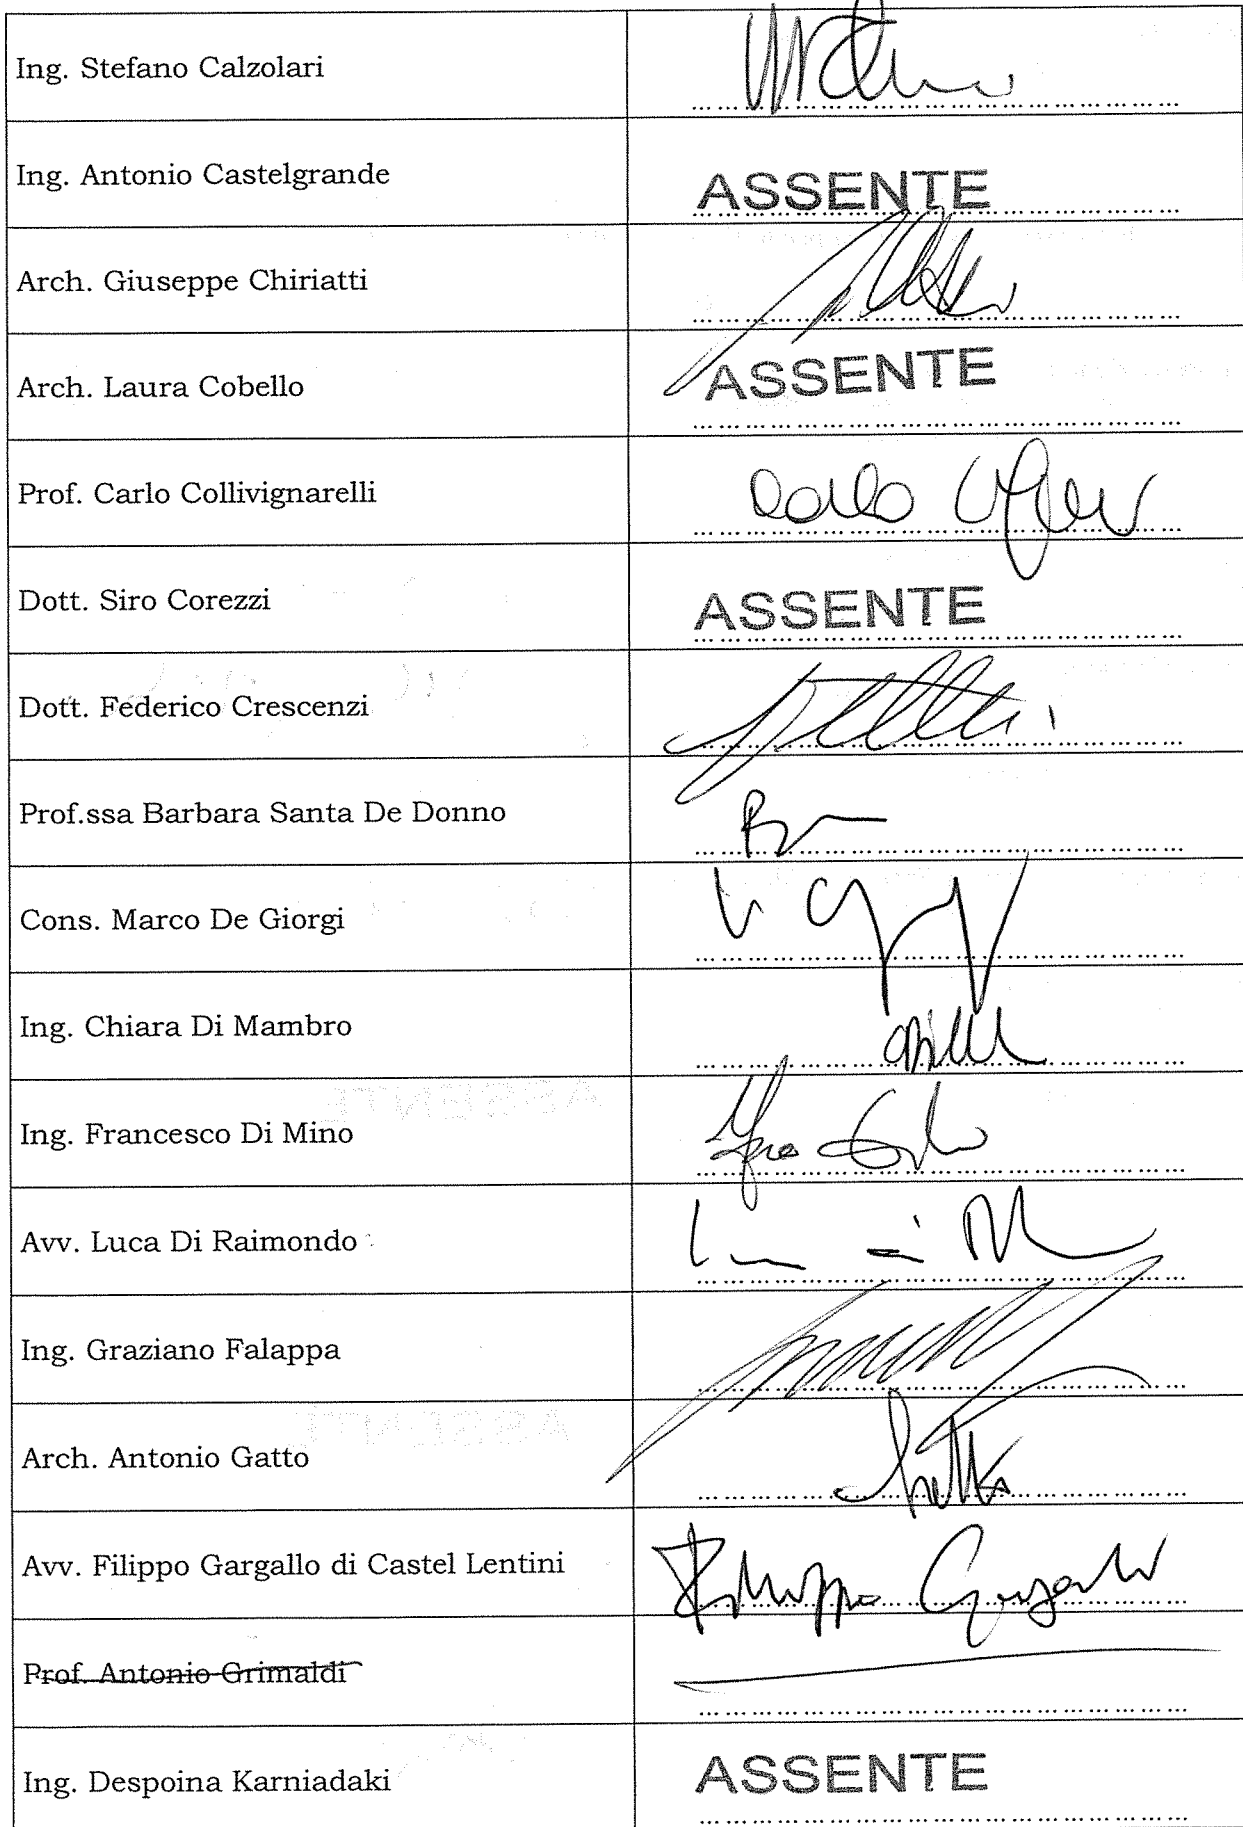 Ing. Stefano Calzolari
Ing. Antonio Castelgrande
ASSENTE
Arch. Giuseppe Chiriatti
Arch. Laura Cobello
ASSENTE
Prof. Carlo Collivignarelli
Carlo
Dott. Siro Corezzi
ASSENTE
Dott. Federico Crescenzi
Prof.ssa Barbara Santa De Donno
Cons. Marco De Giorgi
Ing. Chiara Di Mambro
Ing. Francesco Di Mino
Avv. Luca Di Raimondo
Ing. Graziano Falappa
Arch. Antonio Gatto
Avv. Filippo Gargallo di Castel Lentini
Filippo Gargallo
Prof. Antonio Grimaldi
Ing. Despoina Karniadaki
ASSENTE